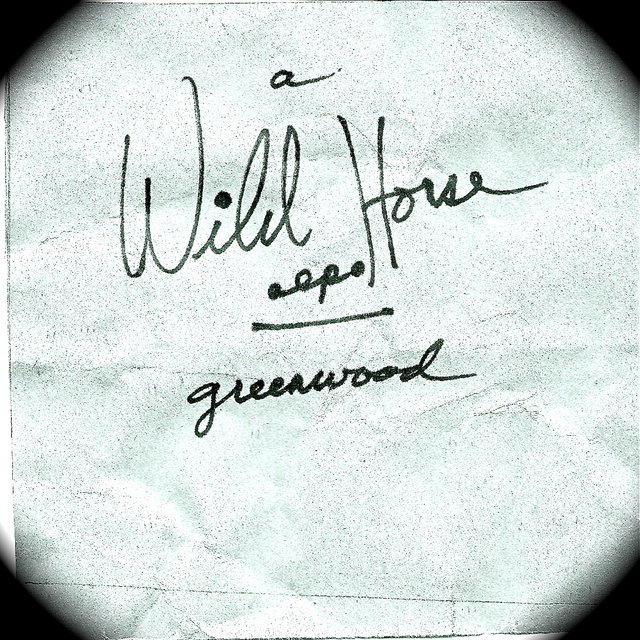 a
Wild Horse
.epo.
greenwood